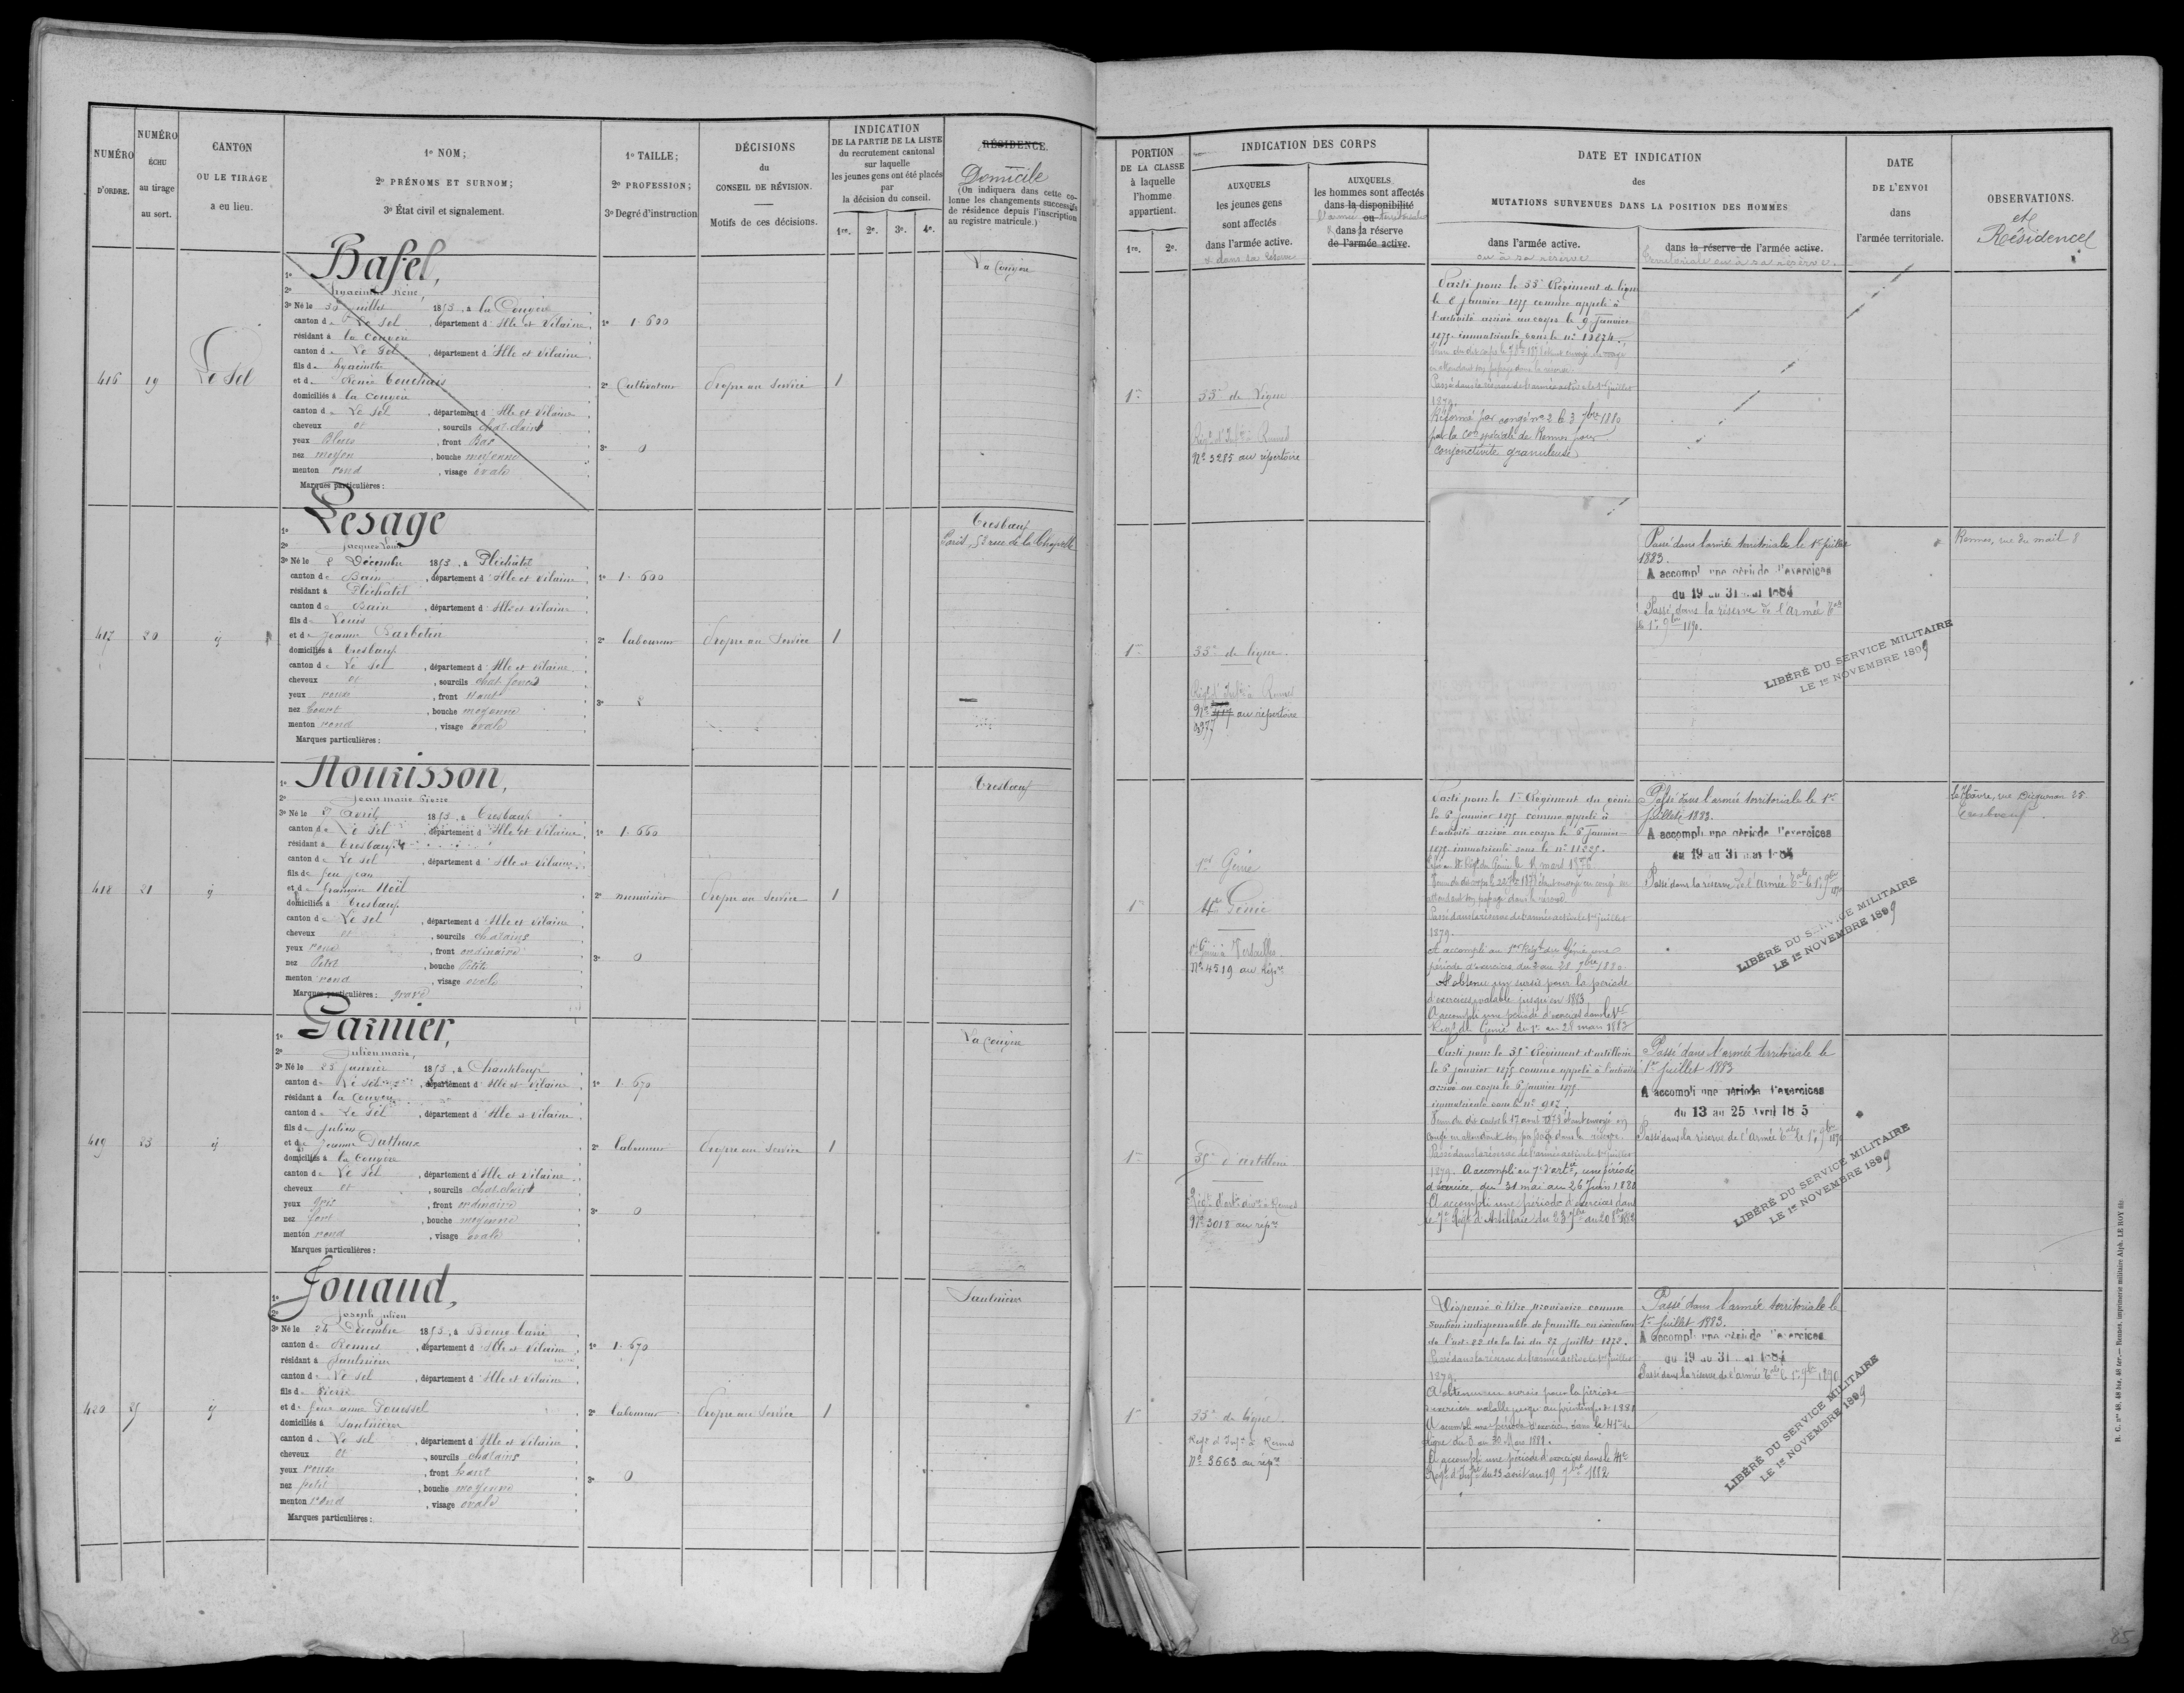 NUMÉRO
D'ORDRE.
NUMÉRO
ÉCHU
au tirage
au sort.
CANTON
OU LE TIRAGE
a eu lieu.
1º NOM;
2º PRÉNOMS ET SURNOM;
3º État civil et signalement.
1º TAILLE;
2º PROFESSION;
3º Degré d'instruction
DÉCISIONS
du
CONSEIL DE RÉVISION.
Motifs de ces décisions.
INDICATION
DE LA PARTIE DE LA LISTE
du recrutement cantonal
sur laquelle
les jeunes gens ont été placés
par
la décision du conseil.
1re. 2e. 3e. 4e.
RÉSIDENCE.
Domicile
(On indiquera dans cette co-
lonne les changements successifs
de résidence depuis l'inscription
au registre matricule.)
PORTION
DE LA CLASSE
à laquelle
l'homme
appartient.
1re. 2e.
INDICATION DES CORPS
AUXQUELS
les jeunes gens
sont affectés
dans l'armée active.
AUXQUELS
les hommes sont affectés
dans la disponibilité
ou
l'armée territoriale
dans la réserve
de l'armée active.
DATE ET INDICATION
des
MUTATIONS SURVENUES DANS LA POSITION DES HOMMES
dans l'armée active.
ou à sa réserve
dans la réserve de l'armée active.
territoriale ou à sa réserve.
DATE
DE L'ENVOI
dans
l'armée territoriale.
OBSERVATIONS.
et
Résidence
416
19
Le Sel
1º Bafel,
2º hyacinthe réné,
3º Né le juillet 1853, à la Couyère
canton de Le Sel, département d'Ille et Vilaine,
résidant à la Couyère
canton de Le Sel, département d'Ille et Vilaine
fils de hyacinthe
et de Renée
domiciliés à la Couyère
canton de Le Sel, département d'Ille et Vilaine
cheveux et, sourcils chat. clairs
yeux bleus, front Bas
nez moyen, bouche moyenne
menton rond, visage ovale
Marques particulières :
1º 1.600
2º Cultivateur
3º 0
Propre au Service
1
La Couyère
1re
Régt d'Infie à Rennes
Nº 3285 au répertoire
1875 immatriculé sous le nº
Passé dans la réserve de l'armée active le 1er juillet
1879.
Réformé par congé nº 2 le 3 7bre 1880
par la Con spéciale de Rennes pour
conjonctivite granuleuse
417
20
1º Lesage
2º Jacques Louis
3º Né le 2 Décembre 1853, à Pléchâtel
canton de Bain, département d'Ille et Vilaine,
résidant à Pléchâtel
canton de Bain, département d'Ille et Vilaine
fils de Louis
et de Jeanne Barbotin
domiciliés à Tresbœuf
canton de Le Sel, département d'Ille et Vilaine
cheveux et, sourcils chat. foncés
yeux roux, front haut
nez court, bouche moyenne
menton rond, visage ovale
Marques particulières :
1º 1.600
2º laboureur
3º 2
Propre au Service
1
Tresbœuf
Paris, 52 rue de la Chapelle
1re
de ligne.
Régt d'Infie à Rennes
Nº 417 au répertoire
Passé dans l'armée territoriale le 1er juillet
1883.
A accompli une période d'exercices
du 19 au 31 mai 1884
Passé dans la réserve de l'armée tale
le 1er 9bre 1890.
LIBÉRÉ DU SERVICE MILITAIRE
LE 1er NOVEMBRE 1899
Rennes, rue du mail 8
418
21
1º Nourisson,
2º Jean marie Pierre
3º Né le Avril 1853, à Tresbœuf
canton de Le Sel, département d'Ille et Vilaine,
résidant à Tresbœuf
canton de Le Sel, département d'Ille et Vilaine
fils de feu Jean
et de françoise Noël
domiciliés à Tresbœuf
canton de Le Sel, département d'Ille et Vilaine
cheveux et, sourcils chatains
yeux roux, front ordinaire
nez Petit, bouche Petite
menton rond, visage ovale
Marques particulières : gravé
1º 1.660
2º menuisier
3º 0
Propre au Service
1
Tresbœuf
1re
1er Génie
4e Génie
Génie à Versailles
Nº 4519 au Répre
Parti pour le 1er Régiment du génie
le 6 janvier 1875 comme appelé à
l'activité arrivé au corps le 6 janvier
1875 immatriculé sous le nº
Passé dans la réserve de l'armée active le 1er juillet
1879.
A accompli au Régt du Génie une
période d'exercices du au 28 7bre 1880
A obtenu un sursis pour la période
d'exercices valable jusqu'en 1883
A accompli une période d'exercices dans le
Régt du Génie du 1er au 28 mars 1883
Passé dans l'armée territoriale le 1er
juillet 1883.
A accompli une période d'exercices
du 19 au 31 mai 1884
Passé dans la réserve de l'armée tale le 1er 9bre
1890
LIBÉRÉ DU SERVICE MILITAIRE
LE 1er NOVEMBRE 1899
le Hâvre, rue 25.
Tresbœuf
419
23
1º Garnier,
2º Julien marie,
3º Né le 25 janvier 1853, à Chanteloup
canton de Le Sel, département d'Ille et Vilaine
résidant à la Couyère
canton de Le Sel, département d'Ille et Vilaine
fils de Julien
et de Jeanne
domiciliés à la Couyère
canton de Le Sel, département d'Ille et Vilaine
cheveux et, sourcils chat. clairs
yeux gris, front ordinaire
nez fort, bouche moyenne
menton rond, visage ovale
Marques particulières :
1º 1.670
2º laboureur
3º 0
Propre au Service
1
La couyère
1re
35e d'artillerie
Nº 3018 au répre
Parti pour le 35e Régiment d'artillerie
le 6 janvier 1875 comme appelé à l'activité
arrivé au corps le 6 janvier 1875
immatriculé sous le nº
congé en attendant son passage dans la réserve.
Passé dans la réserve de l'armée active le 1er juillet
1879. A accompli au 7e d'artie, une période
d'exercices, du 31 mai au 26 juin 1880
A accompli une période d'exercices dans
le 7e Régt d'Artillerie du 23 7bre au 20 8bre 1882
Passé dans l'armée territoriale le
1er juillet 1883
A accompli une période d'exercices
du 13 au 25 Avril 1885
Passé dans la réserve de l'armée tale le 1er 9bre 1890
LIBÉRÉ DU SERVICE MILITAIRE
LE 1er NOVEMBRE 1899
420
25
1º Jouaud,
2º Joseph julien
3º Né le 24 Décembre 1853, à Bourg barré
canton de Rennes, département d'Ille et Vilaine
résidant à Saulnières
canton de Le Sel, département d'Ille et Vilaine
fils de Pierre
et de feue anne
domiciliés à Saulnières
canton de Le Sel, département d'Ille et Vilaine
cheveux et, sourcils chatains
yeux roux, front haut
nez petit, bouche moyenne
menton rond, visage ovale
Marques particulières :
1º 1.670
2º laboureur
3º 0
Propre au Service
1
Saulnières
1re
de ligne
Régt d'Infie à Rennes
Nº 3663 au répre
Dispensé à titre provisoire comme
soutien indispensable de famille en exécution
de l'art. 22 de la loi du 27 juillet 1872.
Passé dans la réserve de l'armée active le 1er juillet
1879.
A obtenu un sursis pour la période
d'exercices valable jusqu'au printemps 1881
A accompli une période d'exercices dans le 41e de
ligne du 3 au 30 Mars 1881.
A accompli une période d'exercices dans le 41e
Régt d'Infie du 23 août au 19 7bre 1882
Passé dans l'armée territoriale le
1er juillet 1883.
A accompli une période d'exercices
du 19 au 31 mai 1884
Passé dans la réserve de l'armée tale le 1er 9bre 1890
LIBÉRÉ DU SERVICE MILITAIRE
LE 1er NOVEMBRE 1899
R. C. nos 48, 48 bis, 48 ter.— Rennes, imprimerie militaire Alph. LE ROY fils
85